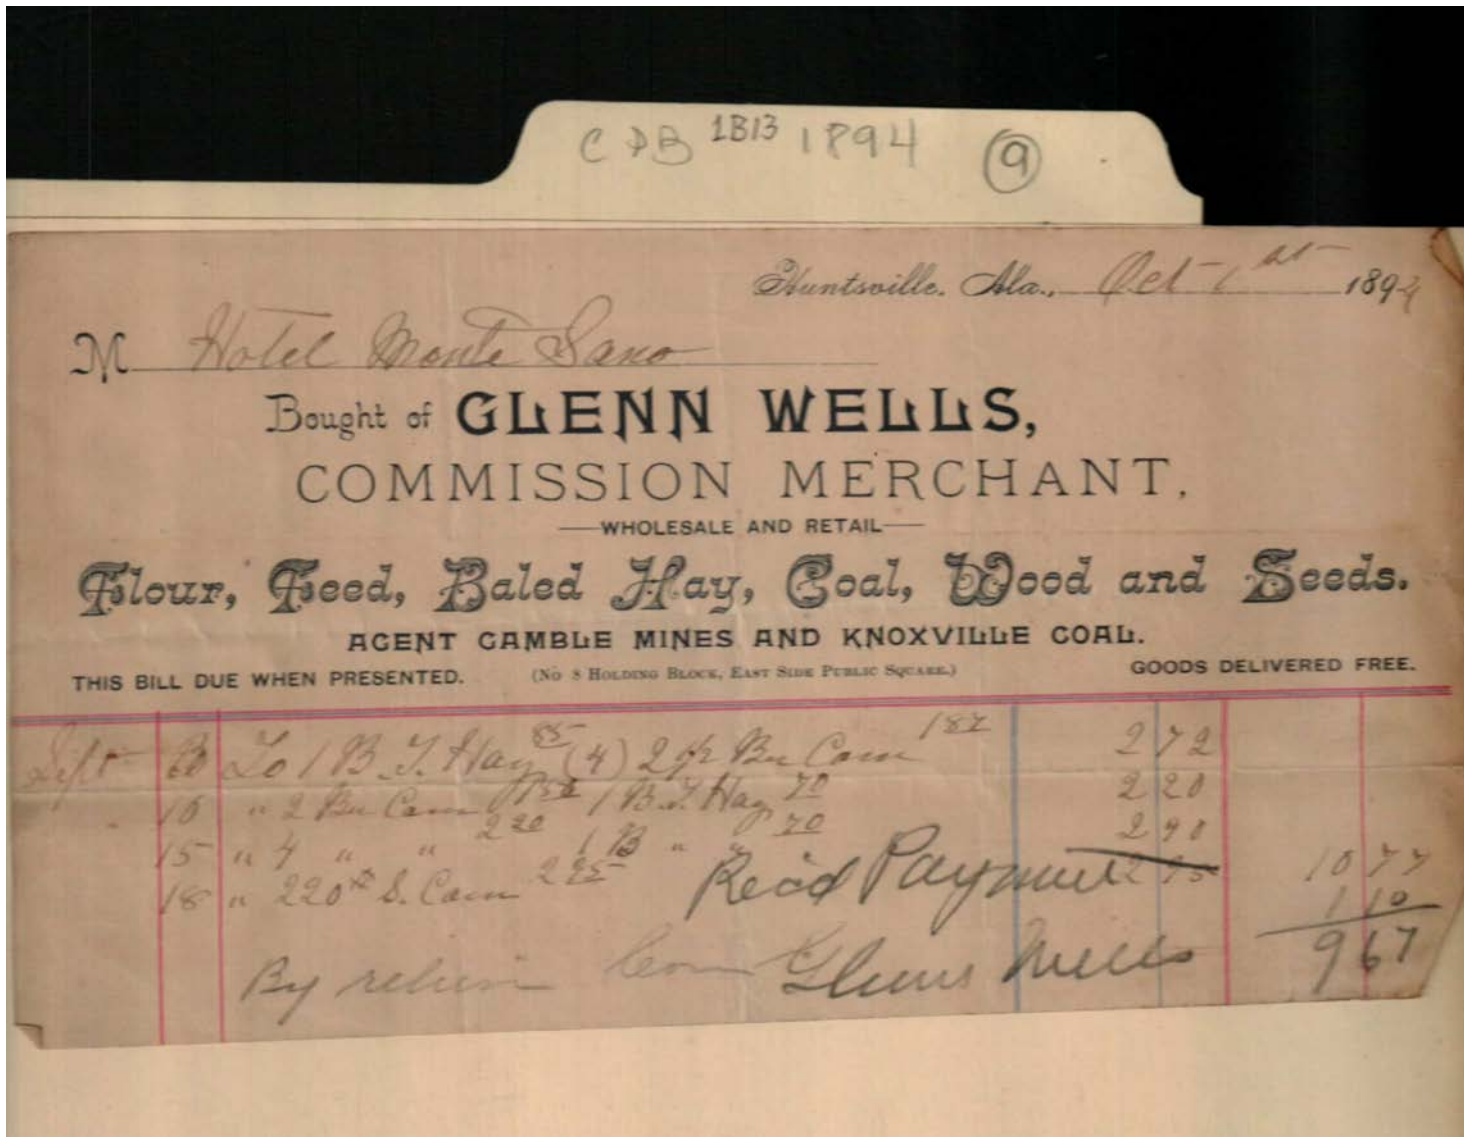 CDB 1B13 1894 9
Huntsville, Ala., Oct 1st 1894
M Hotel Monte Sano
Bought of GLENN WELLS,
COMMISSION MERCHANT,
WHOLESALE AND RETAIL
Flour, Feed, Baled Hay, Coal, Wood and Seeds.
AGENT GAMBLE MINES AND KNOXVILLE COAL.
THIS BILL DUE WHEN PRESENTED. (No 8 Holding Block, East Side Public Square.) GOODS DELIVERED FREE.
Sept To 1 B. T. Hay 85 (4) 2 1/2 Bu Corn 187 2 72
10 " 2 Bu Corn 1 B. T. Hay 70 2 20
15 " 4 " " 2 20 1 B " " 70 2 90
18 " 220 S. Corn 2 95 2 95 10 77
Recd Payment 1 10
By return Corn Glenn Wells 9 67